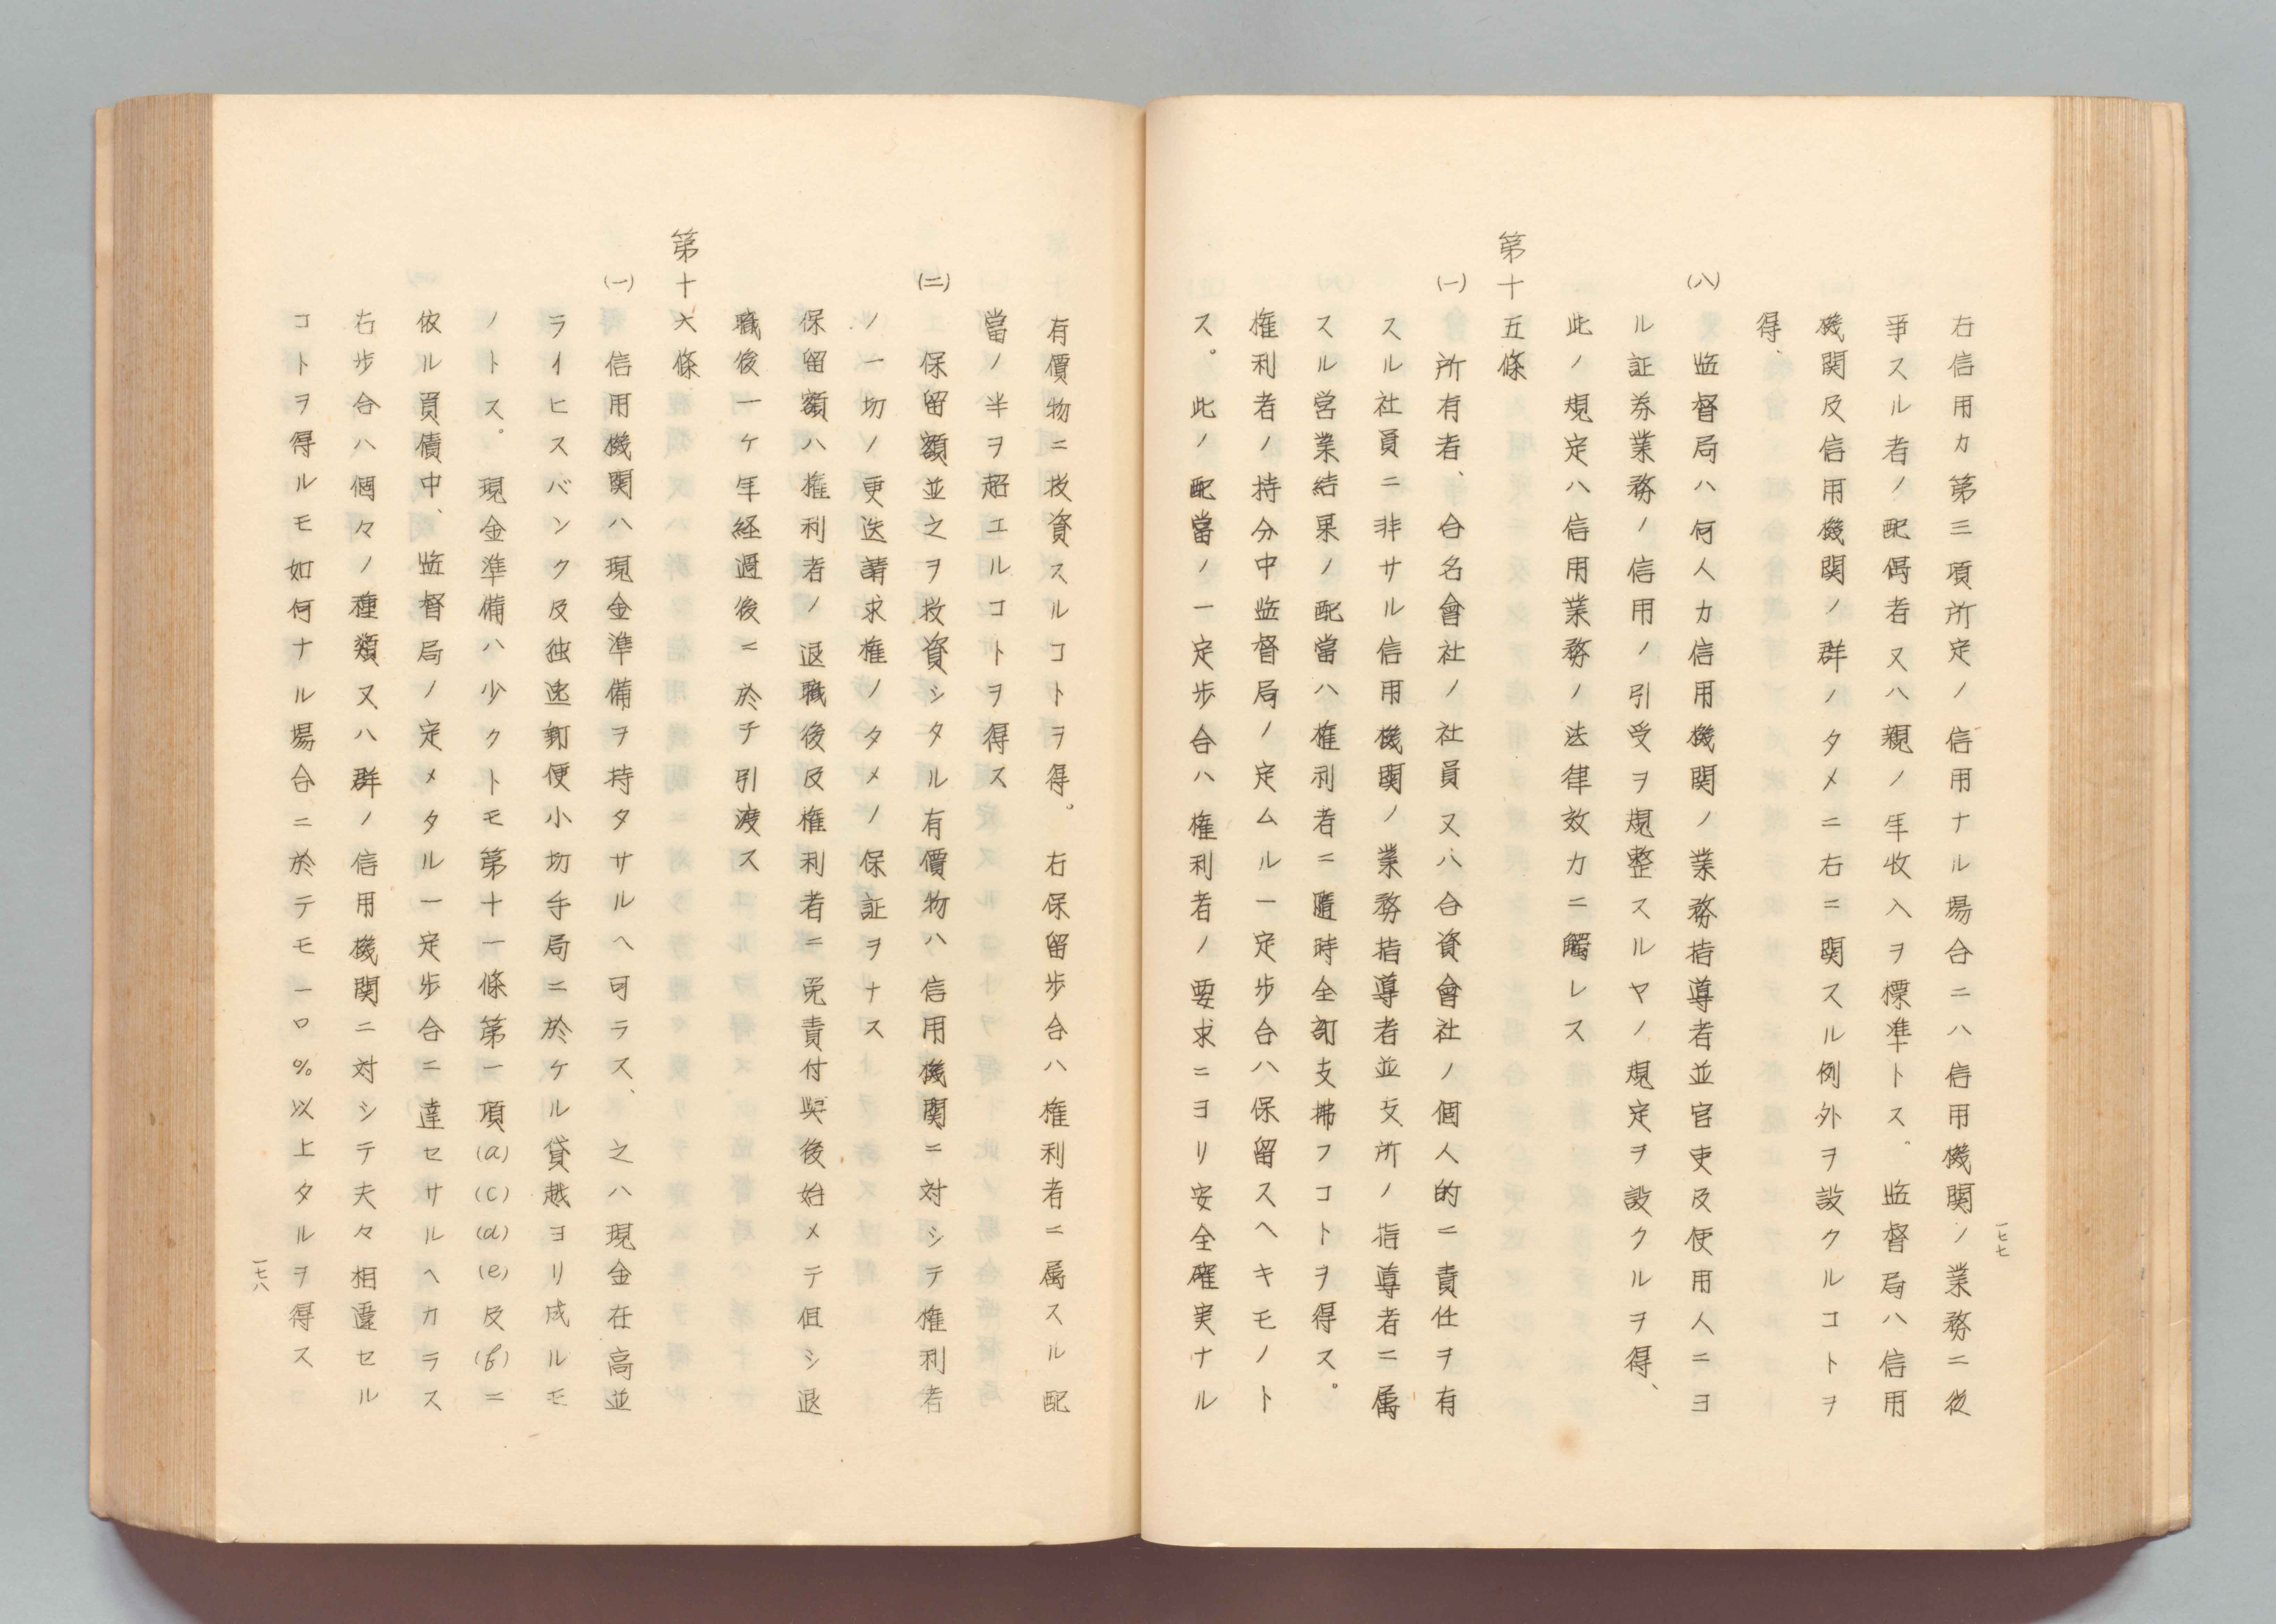 一七七
右信用カ第三項所定ノ信用ナル場合ニハ信用機関ノ業務ニ従
事スル者ノ配偶者又ハ親ノ年收入ヲ標準トス。監督局ハ信用
機関及信用機関ノ群ノタメニ右ニ関スル例外ヲ設クルコトヲ
得、
(八)監督局ハ何人カ信用機関ノ業務指導者並官吏及使用人ニヨ
ル証券業務ノ信用ノ引受ヲ規整スルヤノ規定ヲ設クルヲ得、
此ノ規定ハ信用業務ノ法律效力ニ觸レス
第十五條
(一)所有者、合名會社ノ社員又ハ合資會社ノ個人的ニ責任ヲ有
スル社員ニ非サル信用機関ノ業務指導者並支所ノ指導者ニ属
スル営業結果ノ配當ハ権利者ニ隨時全部支拂フコトヲ得ス。
権利者ノ持分中監督局ノ定ムル一定歩合ハ保留スヘキモノト
ス。此ノ配當ノ一定歩合ハ権利者ノ要求ニヨリ安全確実ナル
有價物ニ投資スルコトヲ得。右保留歩合ハ権利者ニ属スル配
當ノ半ヲ超エルコトヲ得ス
(二)保留額並之ヲ投資シタル有價物ハ信用機関ニ対シテ権利者
ノ一切ノ更迭請求権ノタメノ保証ヲナス
保留額ハ権利者ノ退職後及権利者ニ免責付與後始メテ但シ退
職後一ケ年経過後ニ於テ引渡ス
第十六條
(一)信用機関ハ現金準備ヲ持タサルヘ可ラス、之ハ現金在高並
ライヒスバンク及独逸郵便小切手局ニ於ケル貸越ヨリ成ルモ
ノトス。現金準備ハ少クトモ第十一條第一項(a)(c)(d)(e)及(f)ニ
依ル負債中、監督局ノ定メタル一定歩合ニ達セサルヘカラス
右歩合ハ個々ノ種類又ハ群ノ信用機関ニ対シテ夫々相違セル
コトヲ得ルモ如何ナル場合ニ於テモ一〇%以上タルヲ得ス
一七八